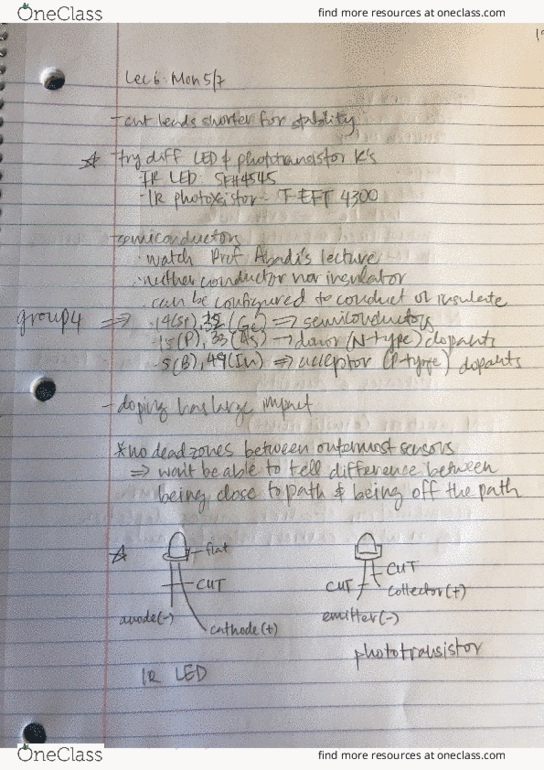 OneClass
find more resources at oneclass.com
Lec 6: Mon 5/7
- cut leads shorter for stability
☆ - try diff LED & phototransistor K's
IR LED: SFH4545
- IR photoxsistor - TEFT 4300
- semiconductors
· watch Prof Abadi's lecture
· neither conductor nor insulator
· can be configured to conduct or insulate
group 4 ⇒ · 14(Si), 32 (Ge) ⇒ semiconductors
- 15(P), 33(As) → donor (N-type) dopants
- 5(B), 49(In) ⇒ acceptor (P-type) dopants
- doping has large impact
* no dead zones between outermost sensors
⇒ won't be able to tell difference between
being close to path & being off the path
☆
flat
CUT
CUT
CUT
collector(+)
anode(-)
cathode(+)
emitter(-)
phototransistor
IR LED
OneClass
find more resources at oneclass.com